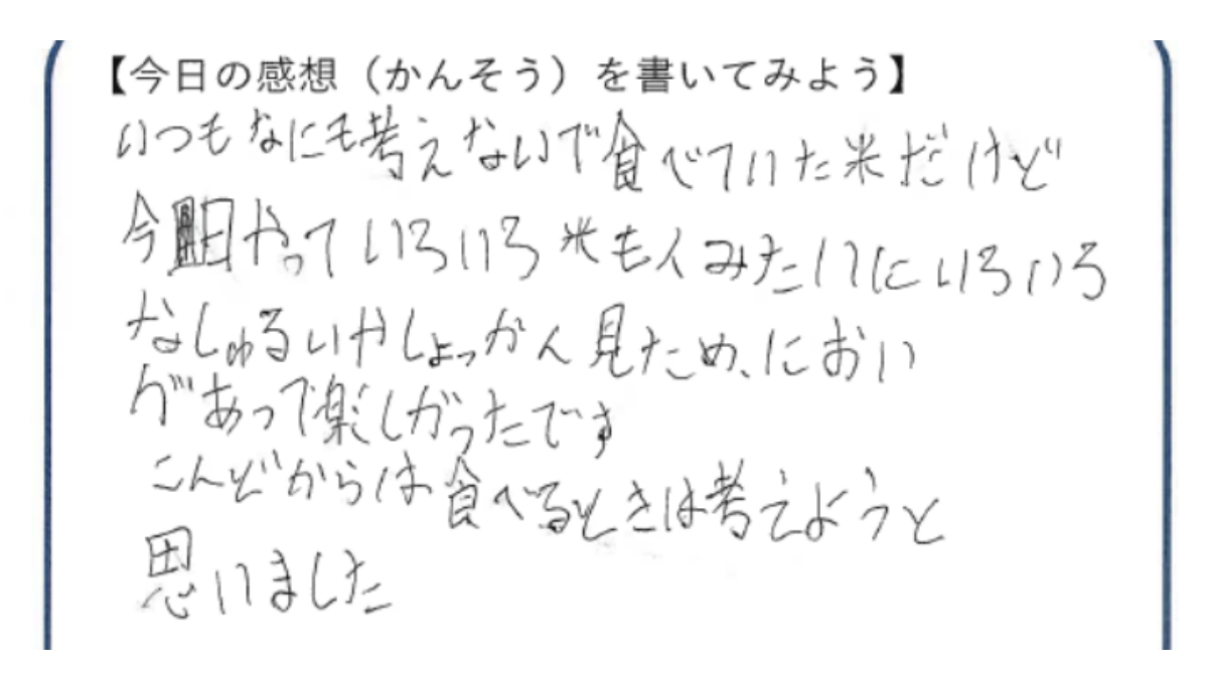 【今日の感想（かんそう）を書いてみよう】
いつもなにも考えないで食べていた米だけど
今日やっていろいろ米も人みたいにいろいろ
なしゅるいやしょっかん見ため、におい
があって楽しかったです
こんどからは食べるときは考えようと
思いました